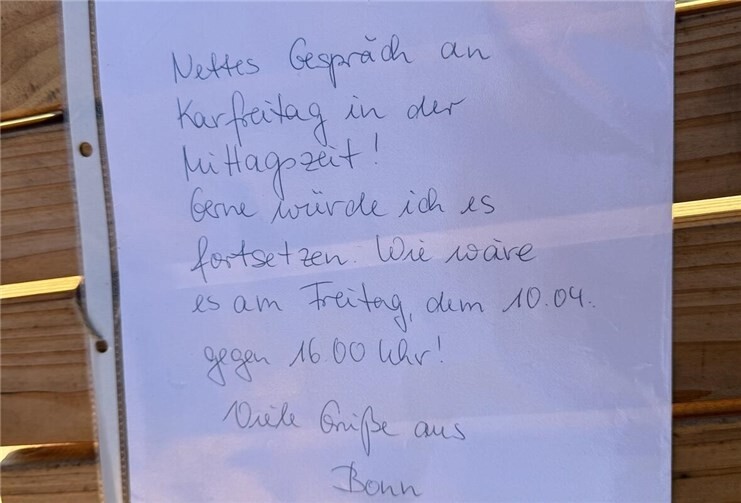 Nettes Gespräch an
Karfreitag in der
Mittagszeit!
Gerne würde ich es
fortsetzen. Wie wäre
es am Freitag, dem 10.04.
gegen 16.00 Uhr!
Viele Grüße aus
Bonn